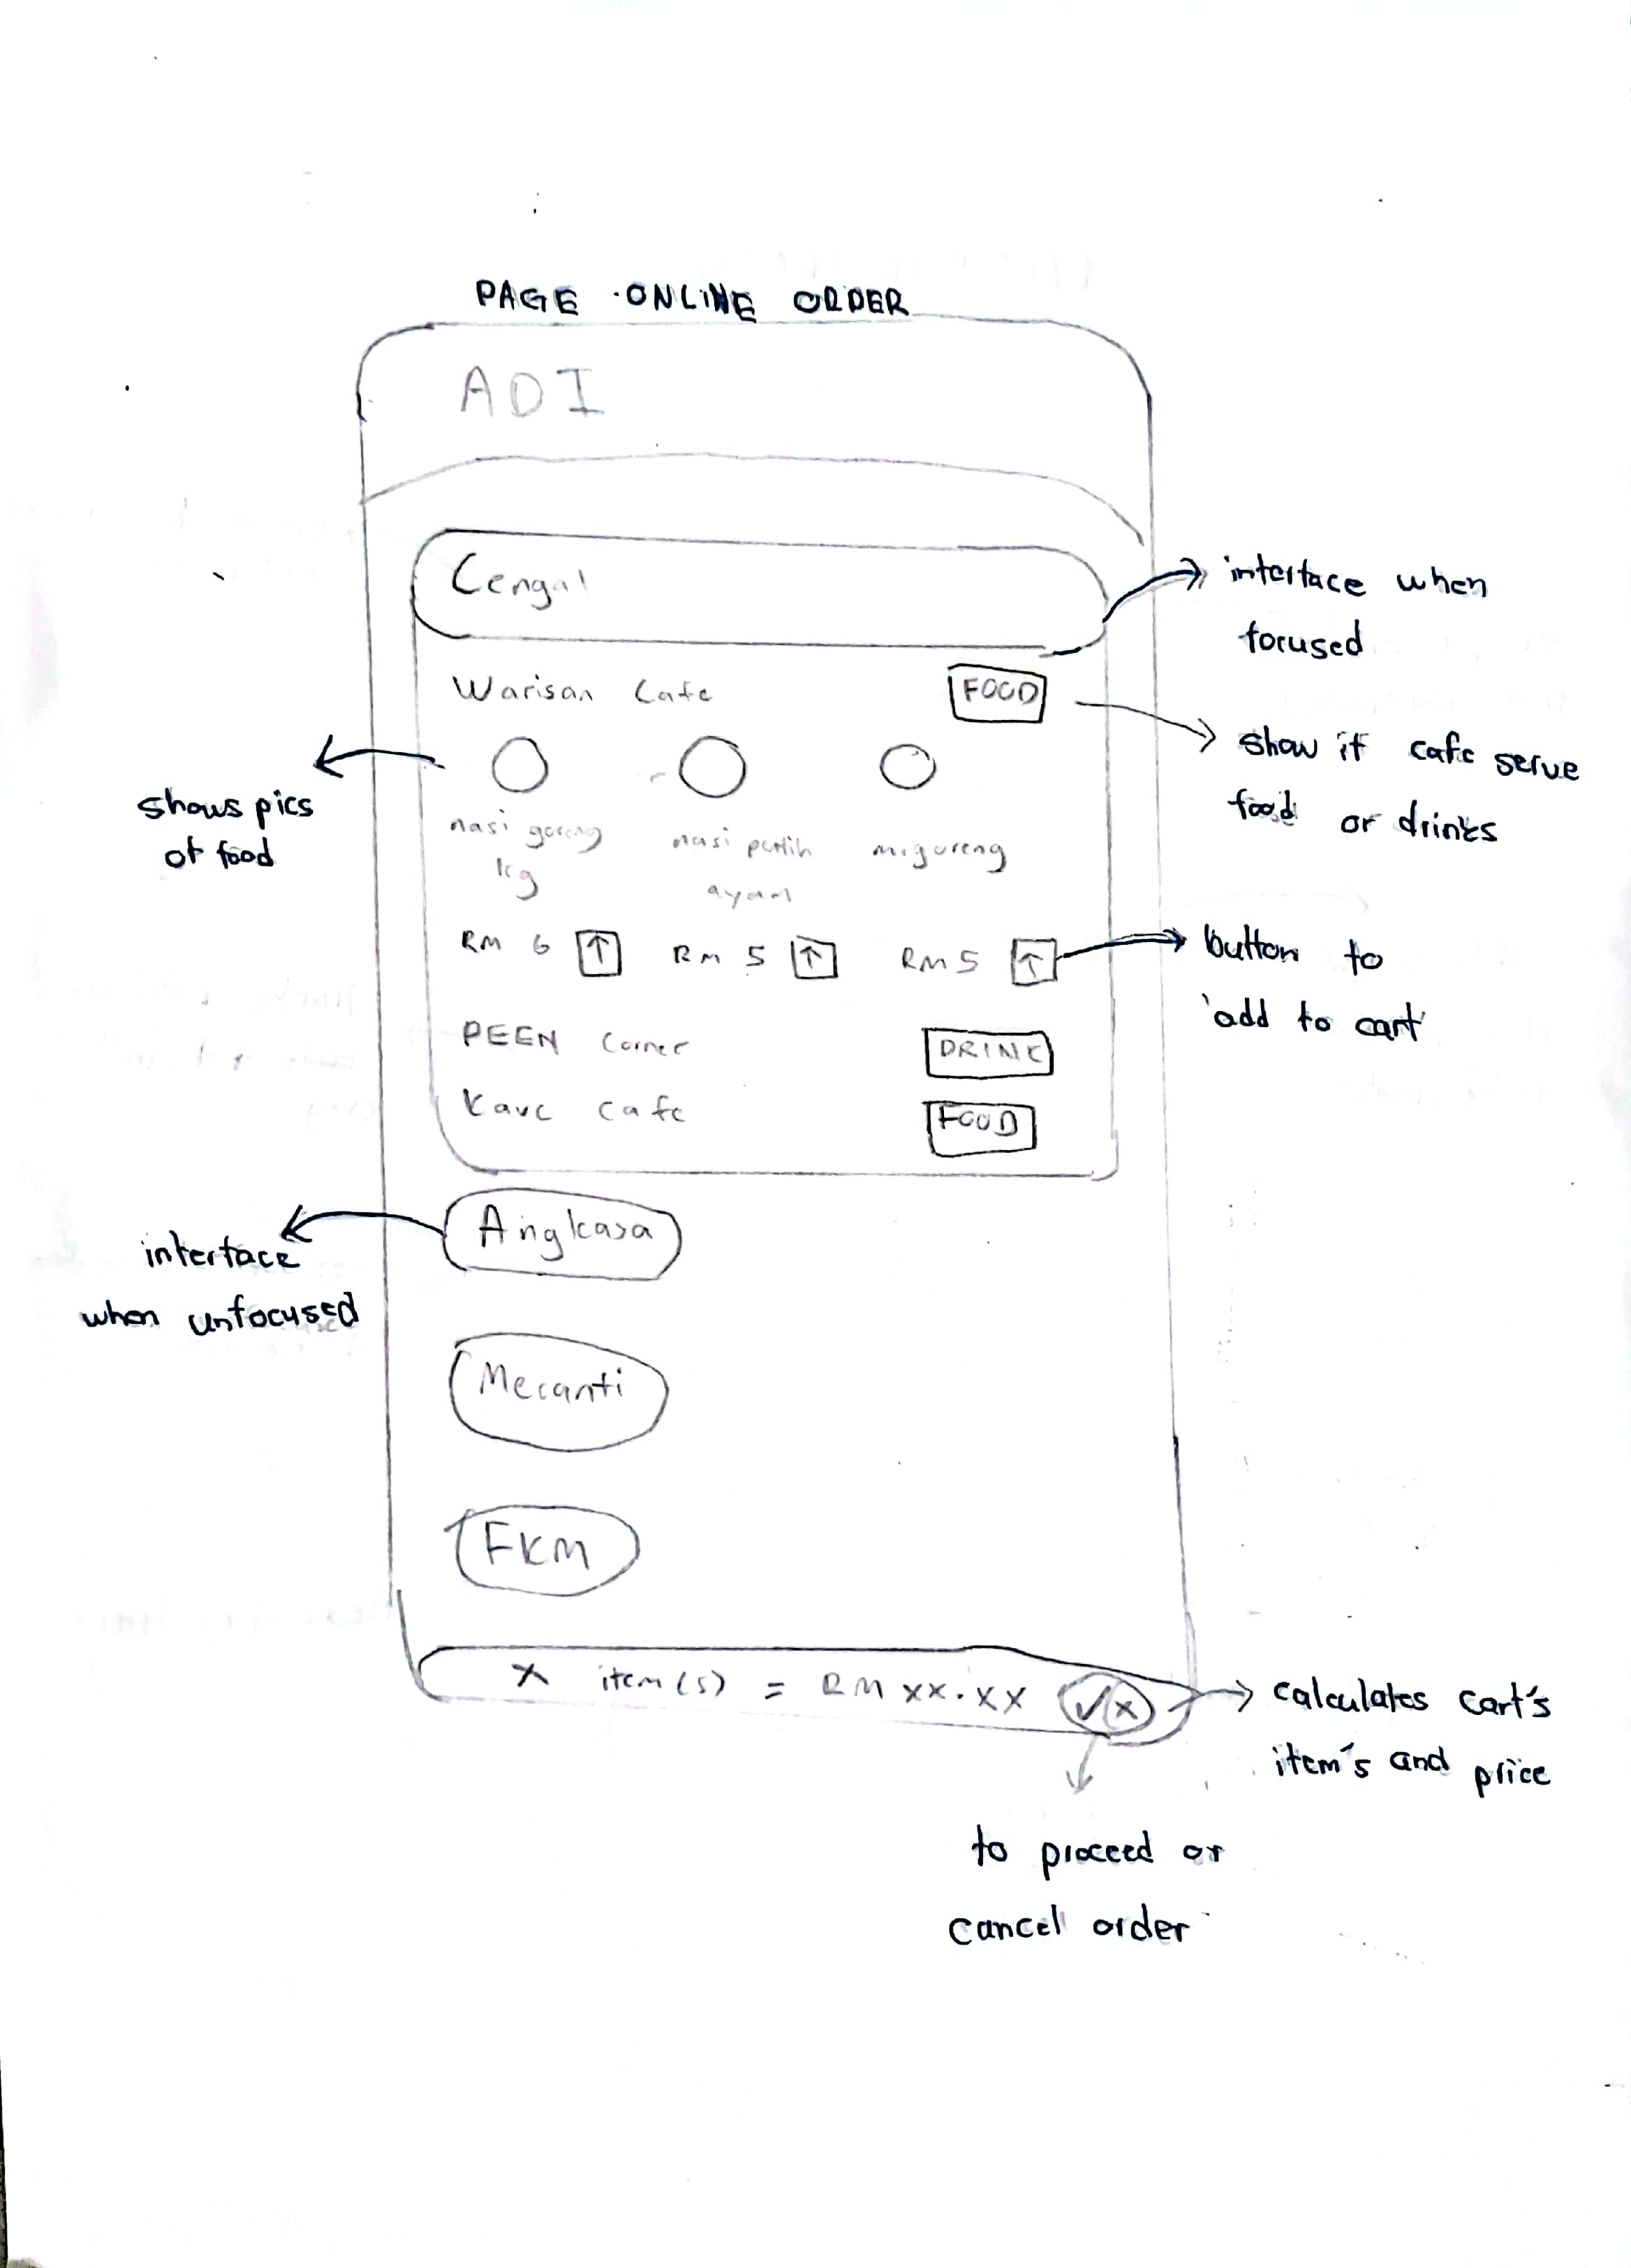 PAGE ONLINE ORDER
ADI
Cengal
interface when
focused
Warisan Cafe
FOOD
show if cafe serve
food or drinks
shows pics
of food
nasi goreng
kg
nasi putih
ayam
mi goreng
RM 6
RM 5
RM 5
button to
add to cart
PEEN Corner
DRINK
cafe
FOOD
Angkasa
interface
when unfocused
Meranti
FKM
X item(s) = RM XX.XX ✓ X
calculates cart's
item's and price
to proceed or
cancel order